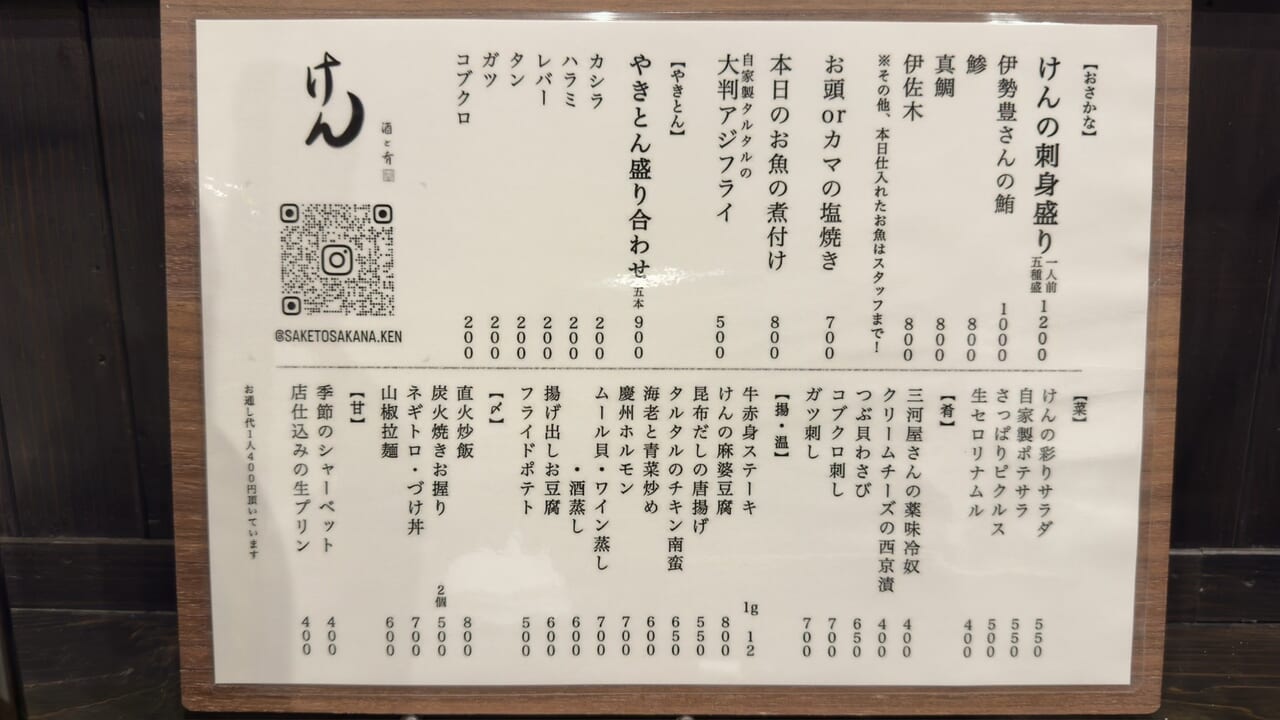 【おさかな】
けんの刺身盛り 一人前 五種盛 1200
伊勢豊さんの鮪 1000
鯵 800
真鯛 800
伊佐木 800
※その他、本日仕入れたお魚はスタッフまで！
お頭orカマの塩焼き 700
本日のお魚の煮付け 800
自家製タルタルの
大判アジフライ 500
【やきとん】
やきとん盛り合わせ 五本 900
カシラ 200
ハラミ 200
レバー 200
タン 200
ガツ 200
コブクロ 200
けん
酒と肴
@SAKETOSAKANA.KEN
【菜】
けんの彩りサラダ 550
自家製ポテサラ 550
さっぱりピクルス 500
生セロリナムル 400
【肴】
三河屋さんの薬味冷奴 400
クリームチーズの西京漬 400
つぶ貝わさび 650
コブクロ刺し 700
ガツ刺し 700
【揚・温】
牛赤身ステーキ 1g 12
けんの麻婆豆腐 800
昆布だしの唐揚げ 550
タルタルのチキン南蛮 650
海老と青菜炒め 600
慶州ホルモン 700
ムール貝・ワイン蒸し 700
・酒蒸し 600
揚げ出しお豆腐 600
フライドポテト 500
【〆】
直火炒飯 800
炭火焼きお握り 2個 500
ネギトロ・づけ丼 700
山椒拉麺 600
【甘】
季節のシャーベット 400
店仕込みの生プリン 400
お通し代1人400円頂いています